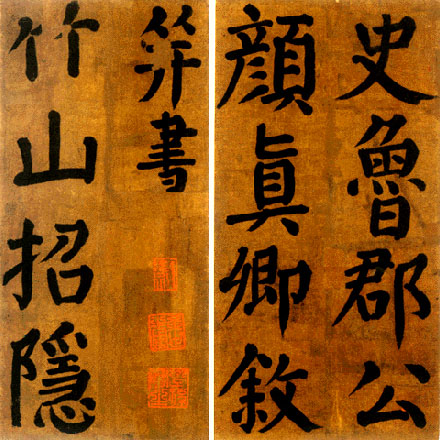 史魯郡公
顔眞卿敘
幷書
竹山招隱